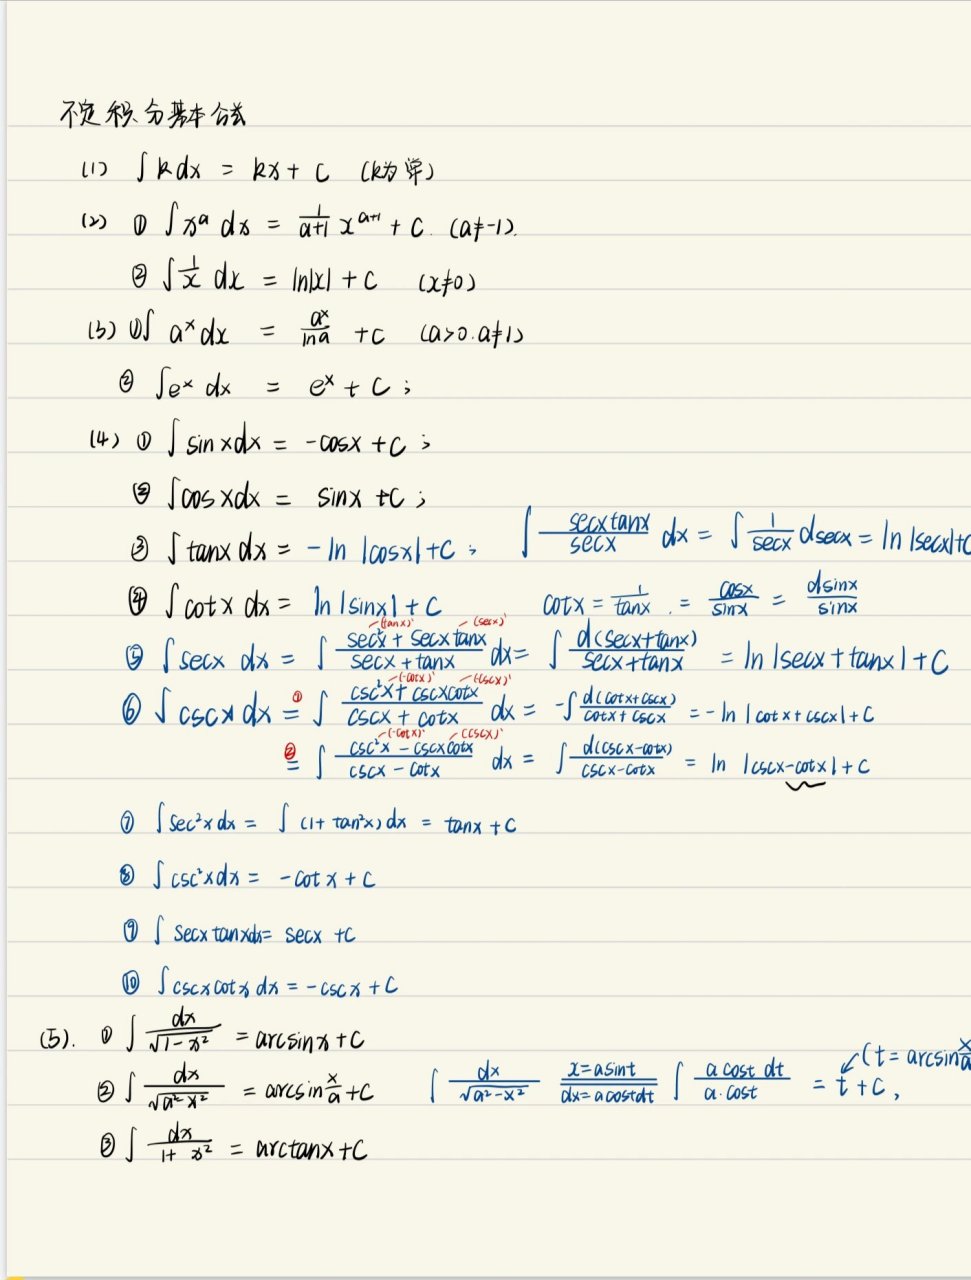 不定积分基本公式
(1) ∫kdx = kx + C (k为常)
(2) ① ∫x^a dx = 1/(a+1) x^(a+1) + C. (a≠-1).
② ∫1/x dx = ln|x| + C (x≠0)
(3) ①∫ a^x dx = a^x/lna + C (a>0.a≠1)
② ∫e^x dx = e^x + C ;
(4) ① ∫sinxdx = -cosx + C ;
② ∫cosxdx = sinx + C ;
③ ∫tanxdx = -ln|cosx| + C ; ∫ secxtanx/secx dx = ∫ 1/secx dsecx = ln|secx|+C
④ ∫cotxdx = ln|sinx| + C cotx = 1/tanx . = cosx/sinx = dsinx/sinx
(tanx)' (secx)'
⑤ ∫secx dx = ∫ (sec²x + secxtanx)/(secx + tanx) dx = ∫ d(secx+tanx)/(secx+tanx) = ln|secx + tanx| + C
(-cotx)' (-cscx)'
⑥ ∫cscxdx =① ∫ (csc²x + cscxcotx)/(cscx + cotx) dx = -∫ d(cotx+cscx)/(cotx+cscx) = -ln|cotx+cscx| + C
(-cotx)' (cscx)'
②= ∫ (csc²x - cscxcotx)/(cscx - cotx) dx = ∫ d(cscx-cotx)/(cscx-cotx) = ln|cscx-cotx| + C
⑦ ∫sec²xdx = ∫(1+tan²x)dx = tanx + C
⑧ ∫csc²xdx = -cotx + C
⑨ ∫secxtanxdx = secx + C
⑩ ∫cscxcotxdx = -cscx + C
(5). ① ∫ dx/√(1-x²) = arcsinx + C
② ∫ dx/√(a²-x²) = arcsin x/a + C ∫ dx/√(a²-x²) x=asint/dx=acostdt ∫ a cost dt/a·cost = t + C, (t = arcsin x/a
③ ∫ dx/(1+x²) = arctanx + C